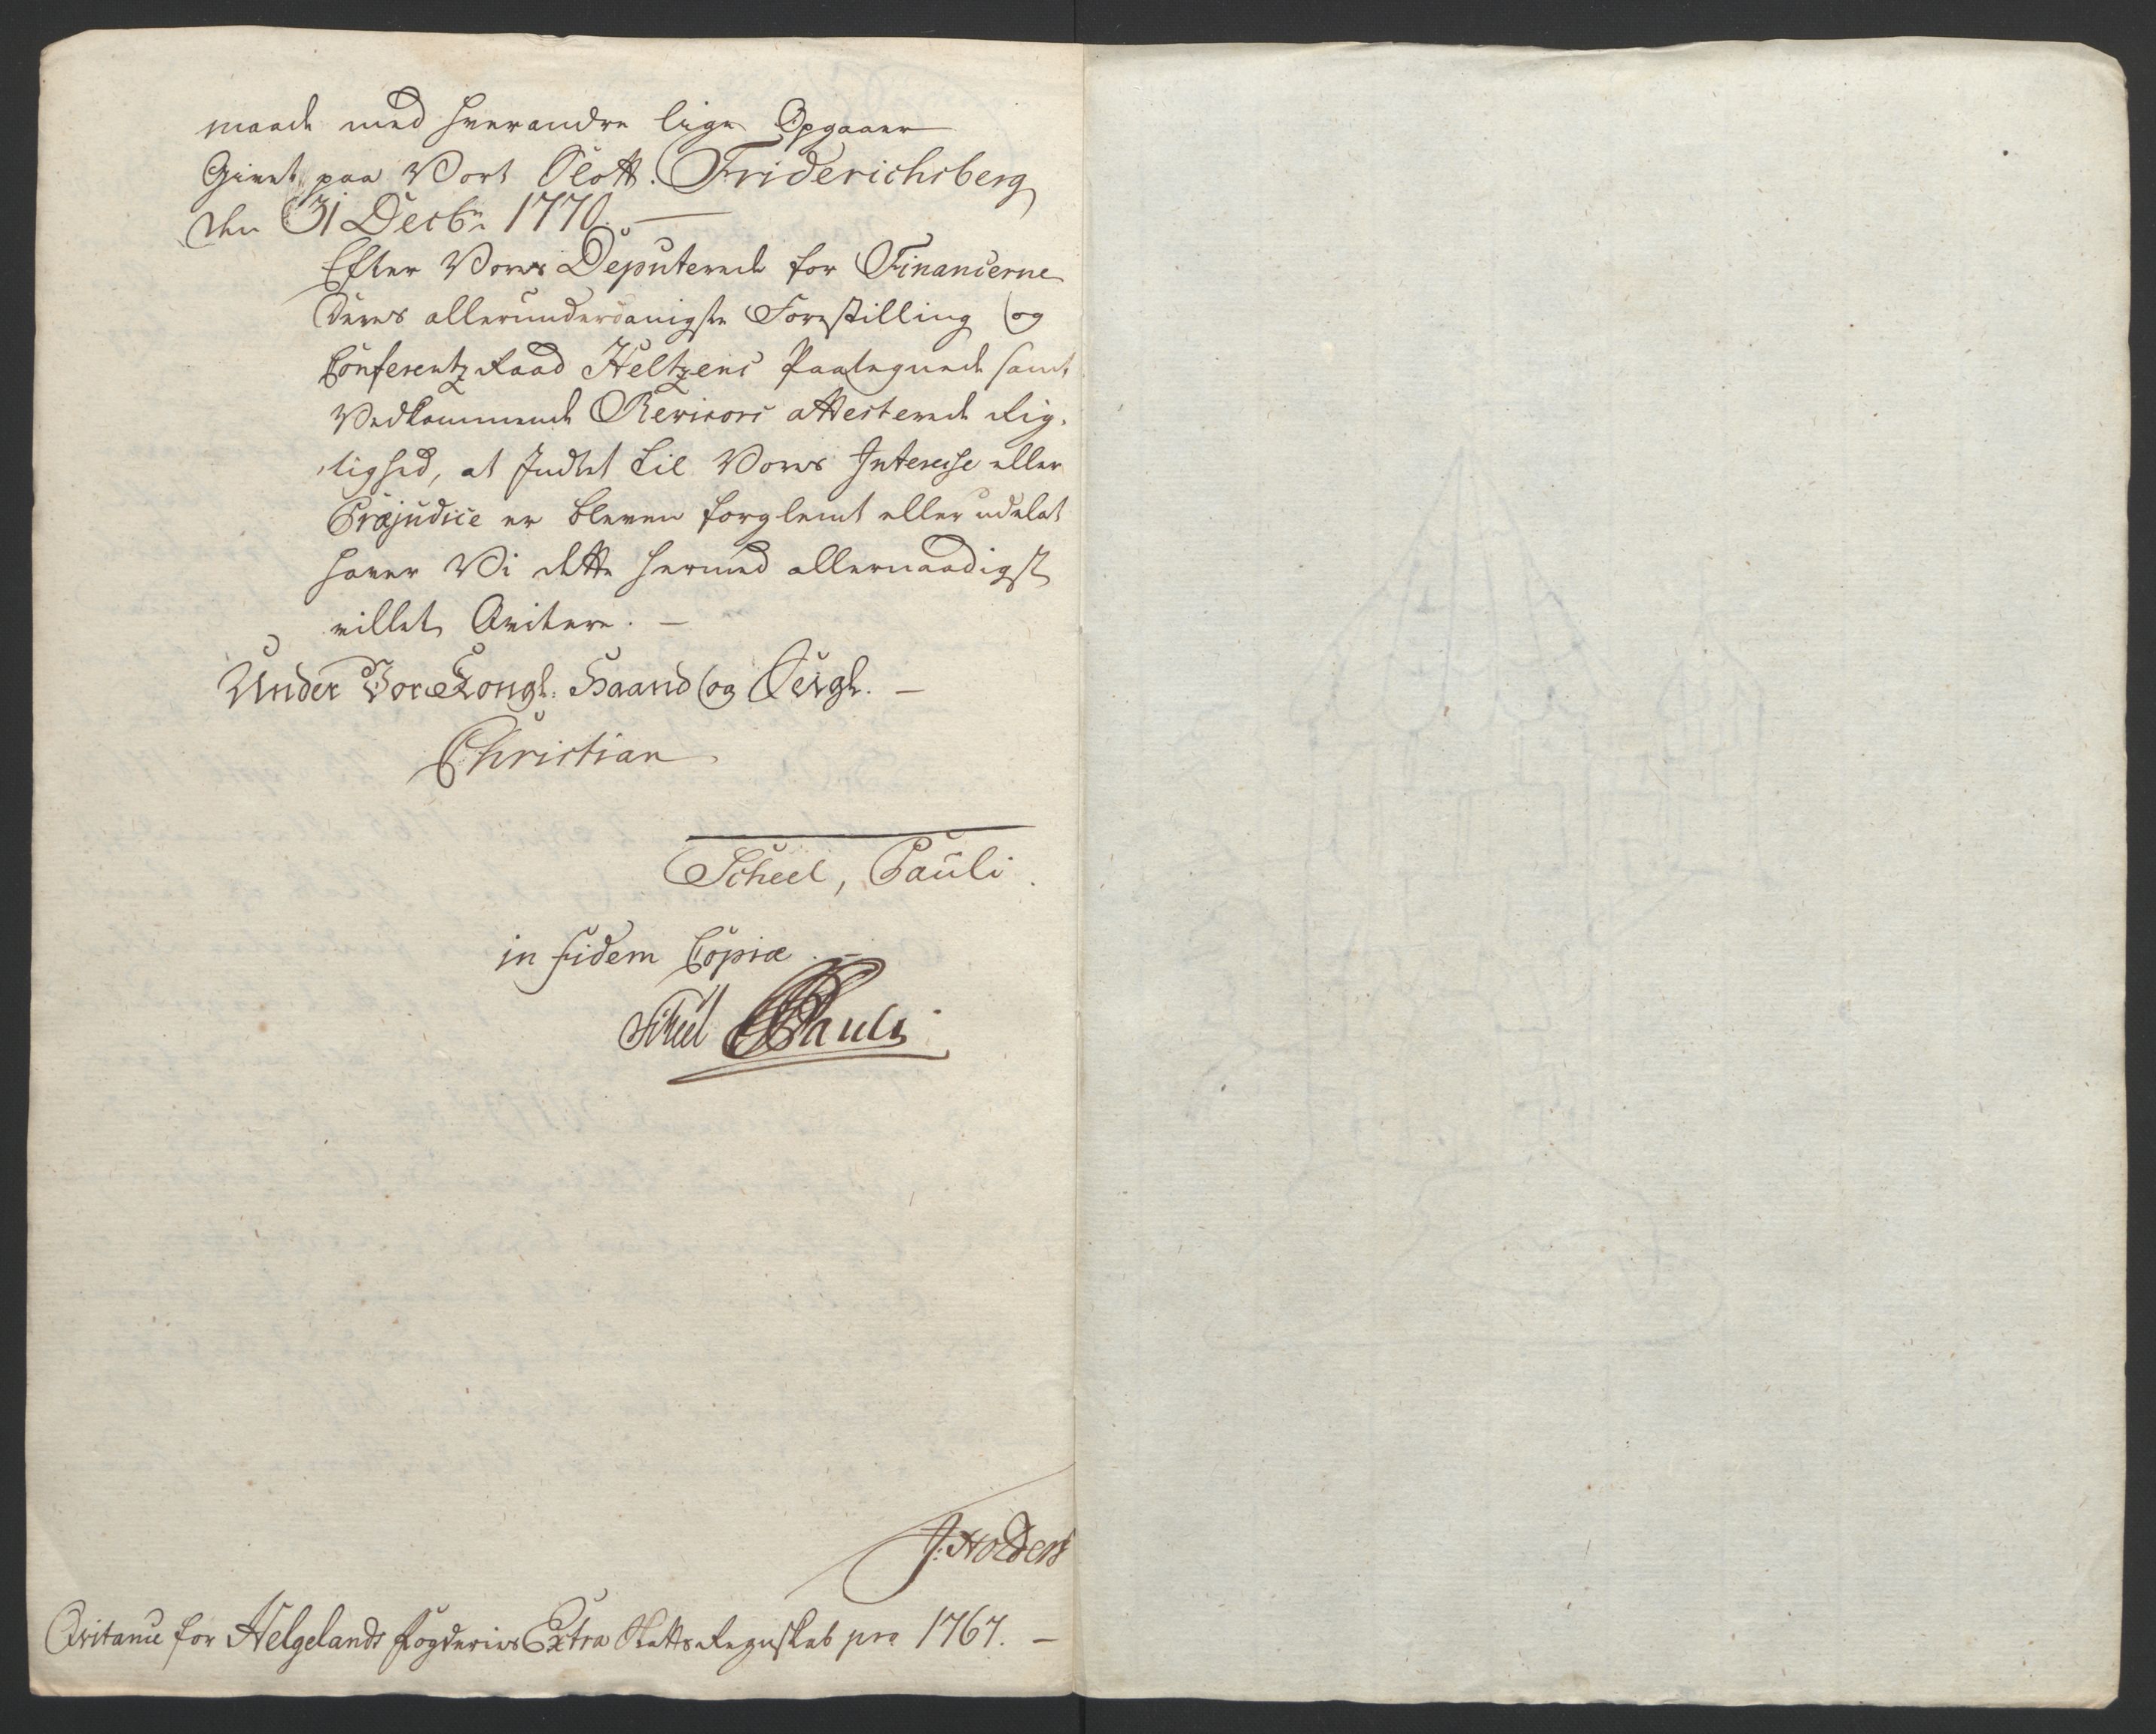 maade med hverandre lige Opgaaer
Givet paa Vort Slott. Friderichsberg
den 31 Decbr. 1770.
Efter Vores Deputerede for Financerne
Deres allerunderdanigste Forestilling og
Conferentz Raad Heltzens Paategnede samt
Vedkommende Revisors attesterede Rig-
tighed, at Indtet til Vores Interesse eller
Præjudice er bleven forglemt eller udelat
haver Vi dette hermed allernaadigst
villet Qvitere. —
Under Vor Kongl: Haand og Seigl. —
Christian
Scheel, Pauli.
in fidem Copiæ. —
Scheel Pauli
Qvitance for Helgelands Fogderies Extra Skatts Regnskab pro 1767. —